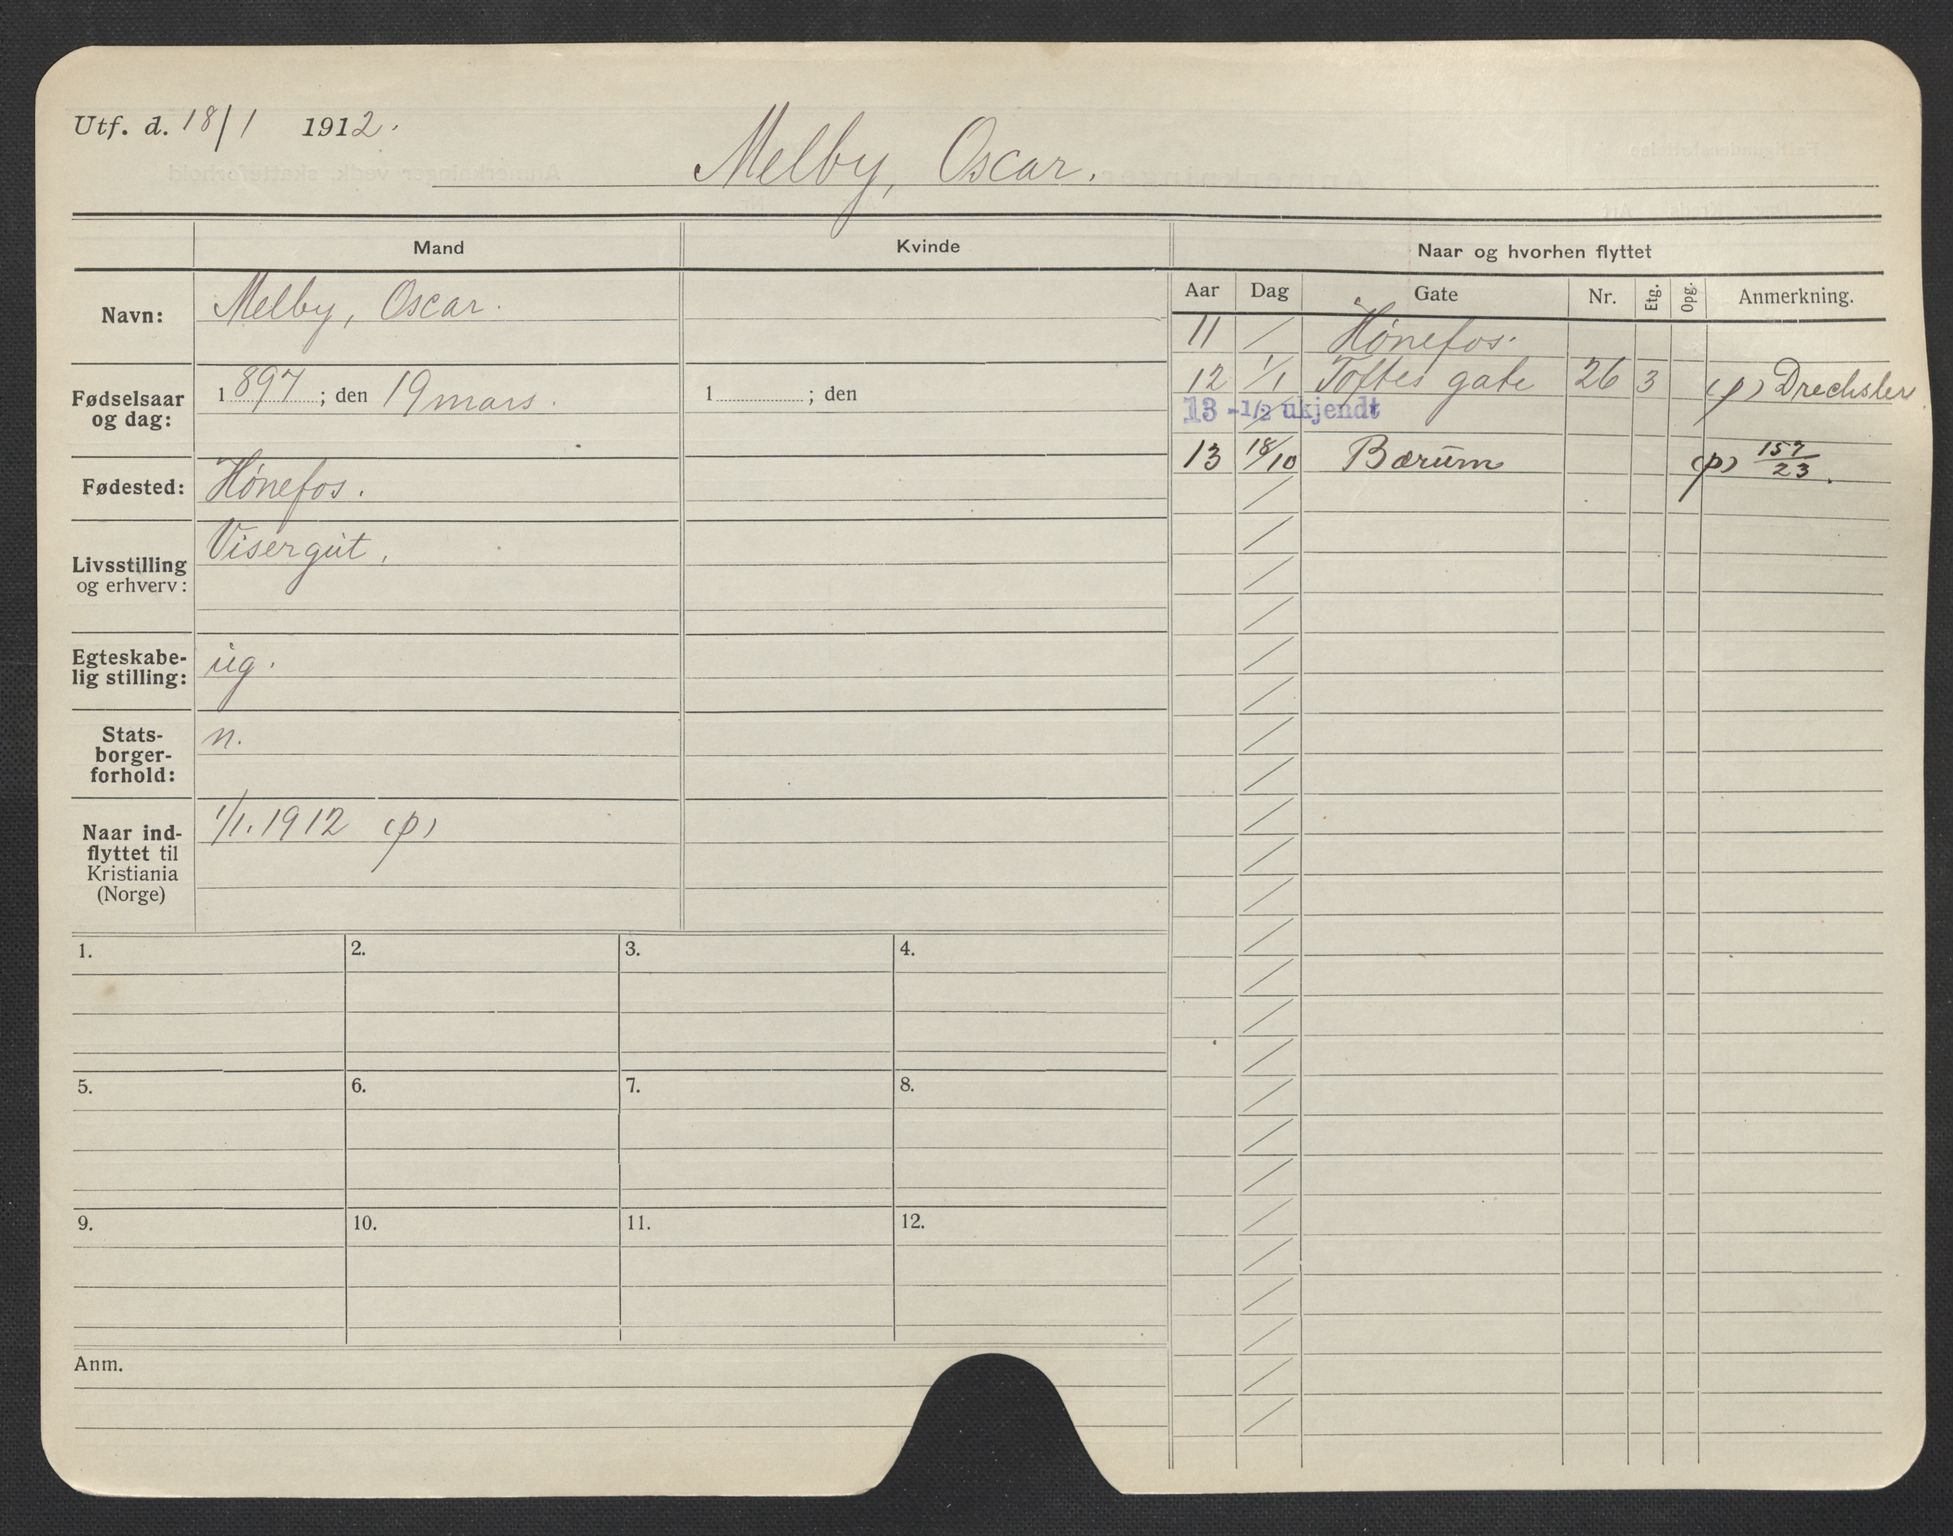 Utf. d. 18/1 1912.
Melby, Oscar.
Mand
Kvinde
Naar og hvorhen flyttet
Navn: Melby, Oscar.
Fødselsaar og dag: 1897; den 19 mars. 1 ; den
Fødested: Hønefos.
Livsstilling og erhverv: Visergut.
Egteskabe-
lig stilling: ug.
Stats-
borger-
forhold: n.
Naar ind-
flyttet til
Kristiania
(Norge) 1/1. 1912 (p)
Aar Dag Gate Nr. Etg. Opg. Anmerkning.
11 / Hønefos.
12 1/1 Toftes gate 26 3 (p) Drechsler
13 -1/2 ukjendt
13 18/10 Bærum (p) 157/23.
1. 2. 3. 4.
5. 6. 7. 8.
9. 10. 11. 12.
Anm.